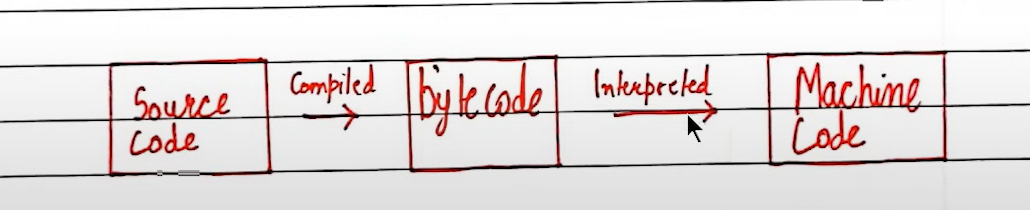 Source
Code
Compiled
bytecode
Interpreted
Machine
Code